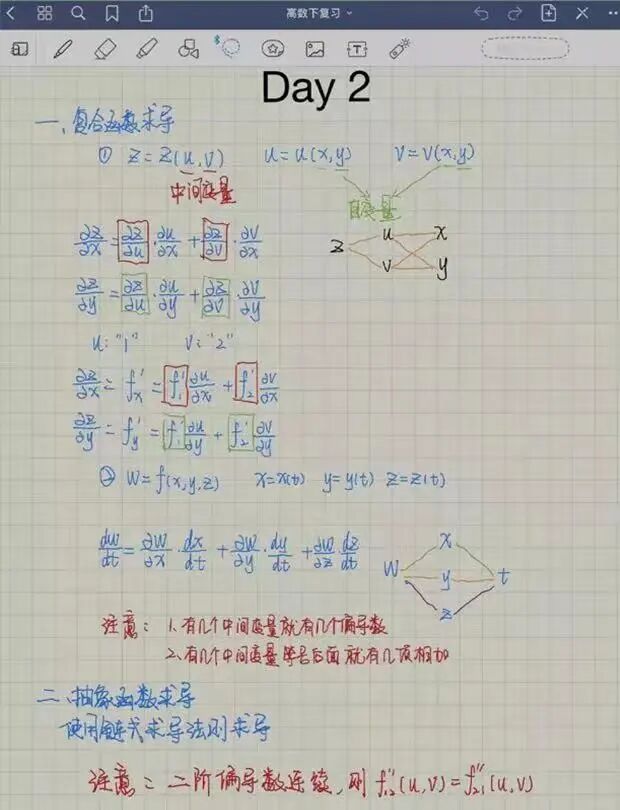 高数下复习
Day 2
一、复合函数求导
① Z=Z(u,v) u=u(x,y) v=v(x,y)
中间变量
自变量
∂z/∂x=∂z/∂u·∂u/∂x+∂z/∂v·∂v/∂x
z u v x y
∂z/∂y=∂z/∂u·∂u/∂y+∂z/∂v·∂v/∂y
u:"1" v:"2"
∂z/∂x=f'x=f'1 ∂u/∂x+f'2 ∂v/∂x
∂z/∂y=f'y=f'1 ∂u/∂y+f'2 ∂v/∂y
② W=f(x,y,z) x=x(t) y=y(t) z=z(t)
dw/dt=∂w/∂x·dx/dt+∂w/∂y·dy/dt+∂w/∂z·dz/dt
W x y z t
注意：1.有几个中间变量就有几个偏导数
2.有几个中间变量等号后面就有几项相加
二、抽象函数求导
使用链式求导法则求导
注意：二阶偏导数连续,则f''12(u,v)=f''21(u,v)